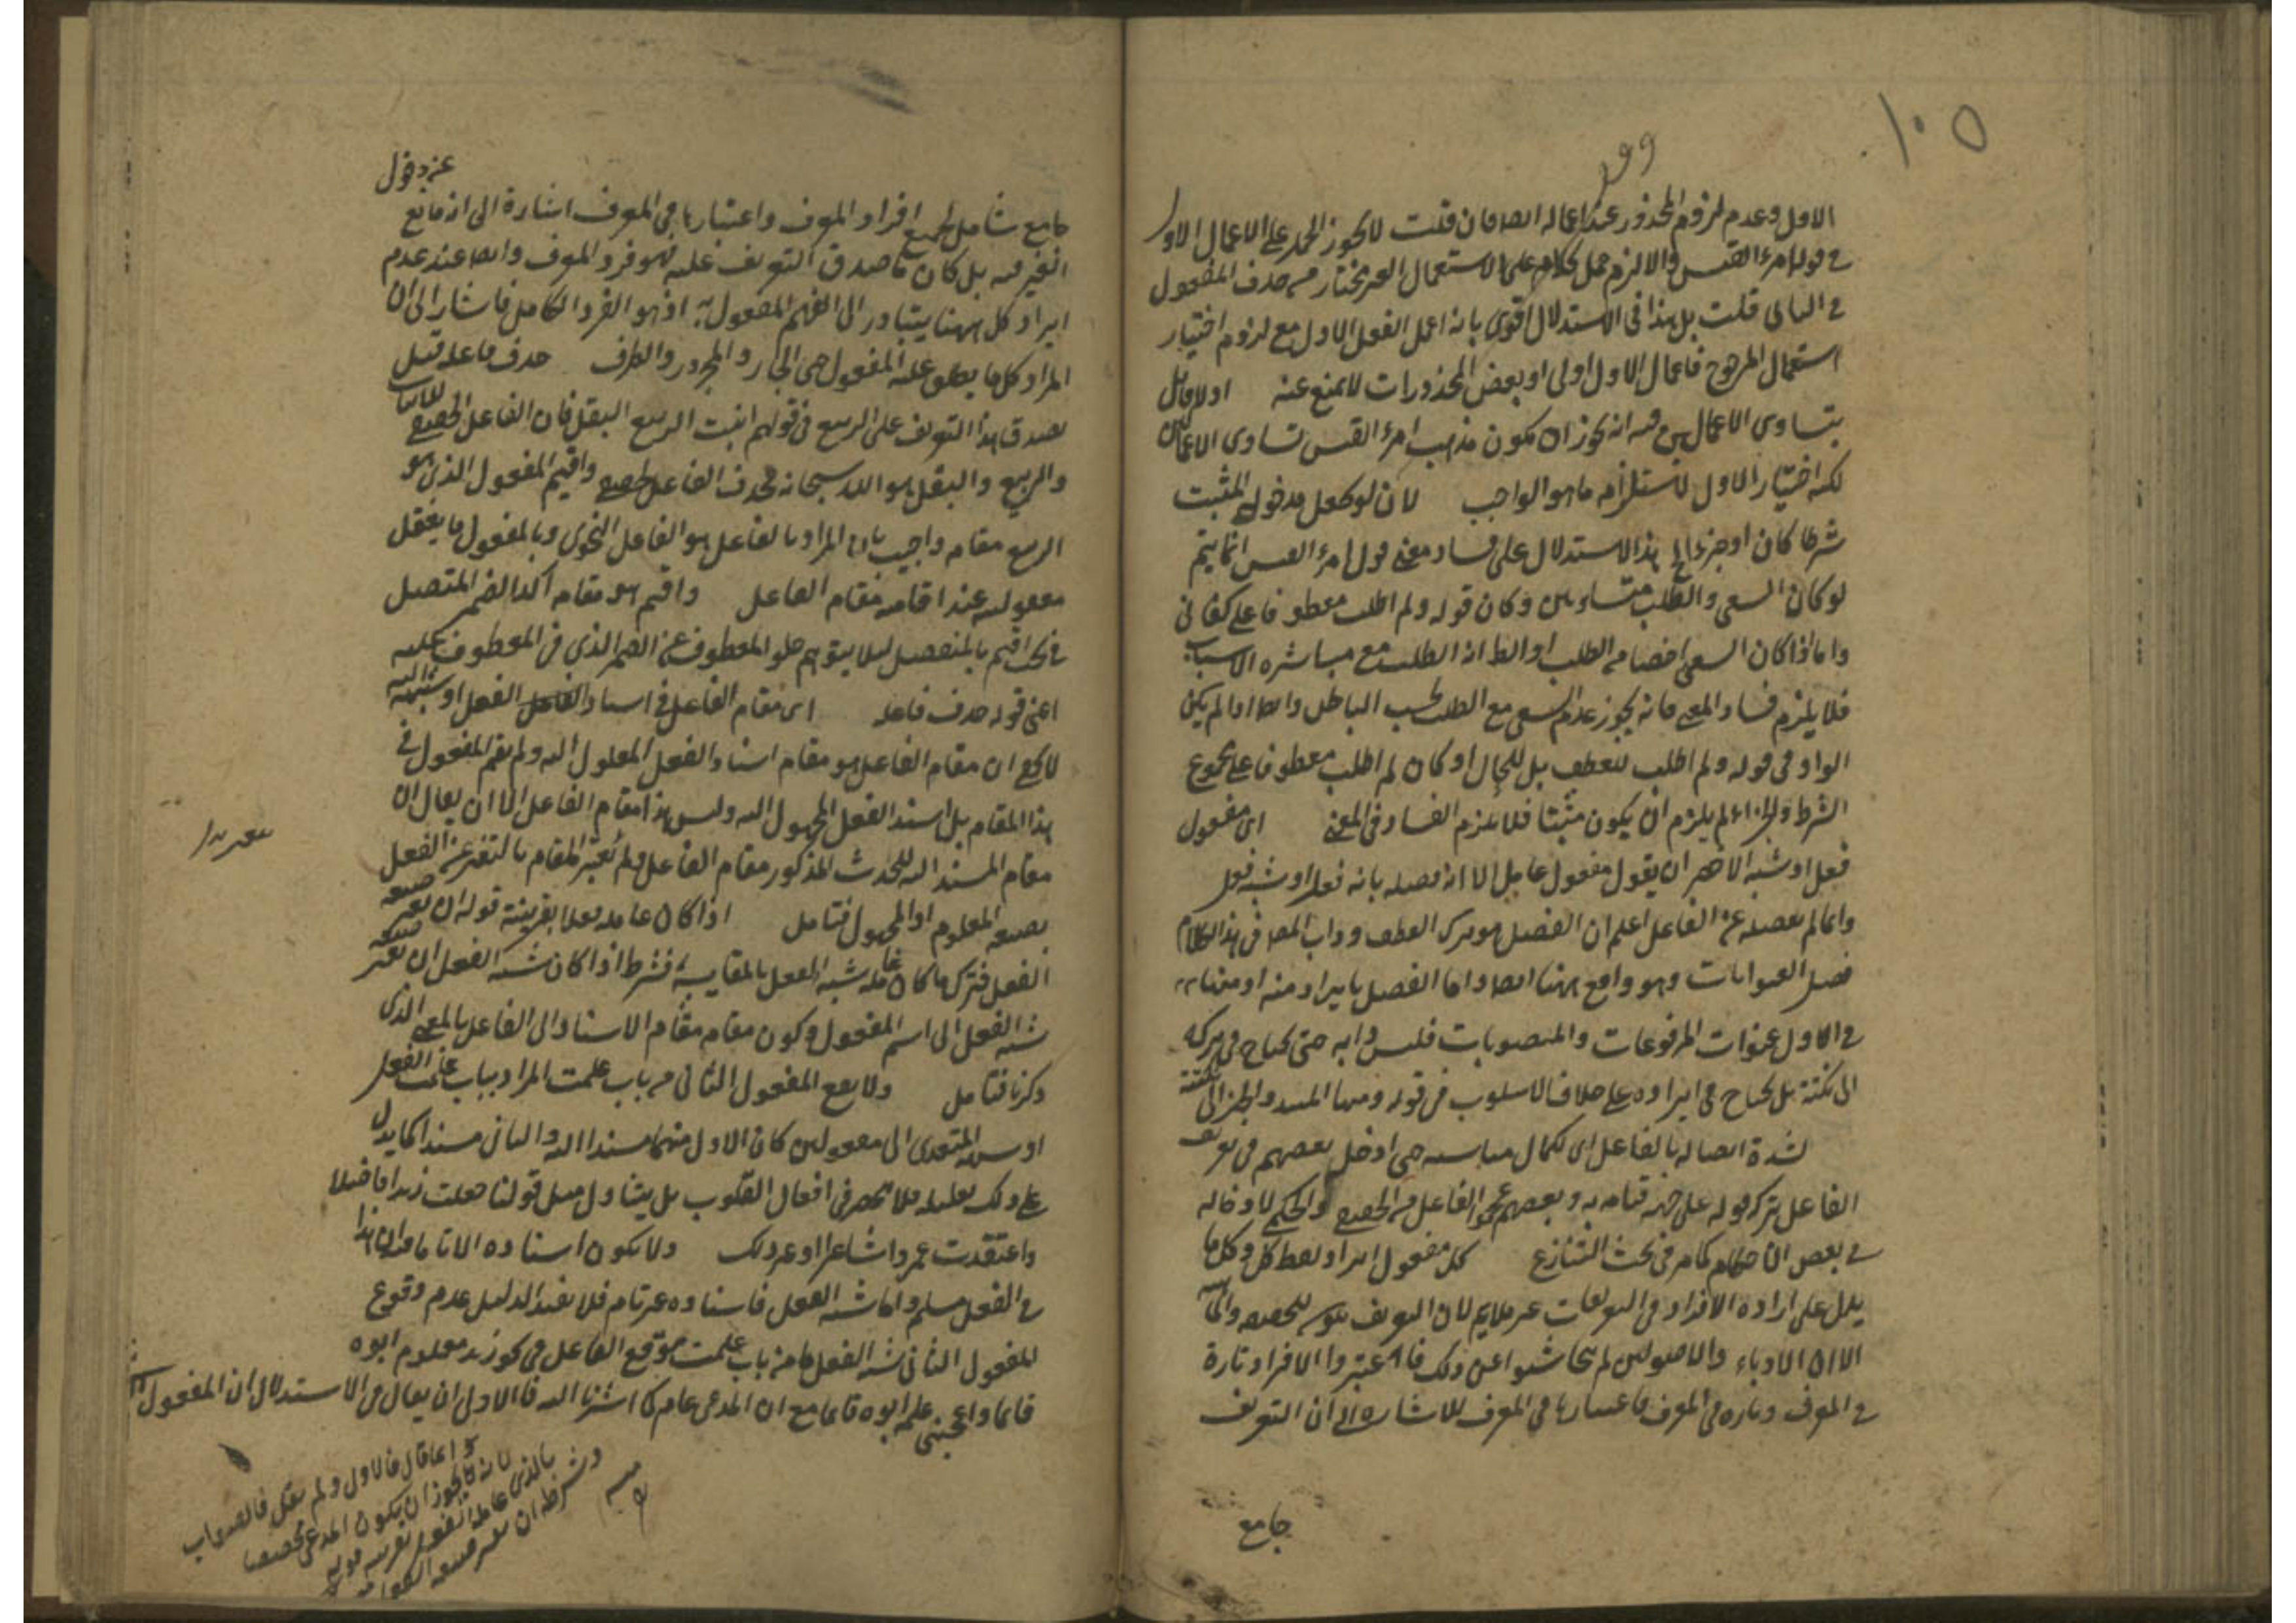 ١٠٥
الاول وعدم لزوم المحذور عند اعماله ايضا فان قلت لا يجوز الحمل على الاعمال الاول
في قول امرء القيس والا لزم حمل كلامه على الاستعمال الغير المختار من حذف المفعول
في الثاني قلت بل هذا في الاستدلال اقوى بانه اعمل الفعل الاول مع لزوم اختيار
استعمال المرجوح فاعمال الاول اولى او بعض المحذورات لا يمنع عنه اولا قائل
بتساوى الاعمالين فيه انه يجوز ان يكون مذهب امرء القيس تساوى الاعمالين
لكنه اختيار الاول لاستلزامه ما هو الواجب لان لو يجعل مدخوله المثبت
شرطا كان او جزاء الخ هذا الاستدلال على فساد معنى قول امرء القيس انما يتم
لو كان السعى والطلب متساويين وكان قوله ولم اطلب معطوفا على كفانى
واما اذا كان السعى اخص من الطلب اذ الطلب مع مباشرة الاسباب
فلا يلزم فساد المعنى فانه يجوز عدم السعى مع الطلب بحسب الباطن وايضا اذا لم يكن
الواو في قوله ولم اطلب للعطف بل للحال او كان لم اطلب معطوفا على مجموع
الشرط والجزاء لم يلزم ان يكون مثبتا فلا يلزم الفساد في المعنى اى مفعول
فعل او شبه الاخصر ان يقول مفعول عامل الا انه فصله بانه فعل او شبه فعل
وانما لم يفصله عن الفاعل اعلم ان الفصل هو ترك العطف وداب المص في هذا الكلام
فصل العنوانات وهو واقع ههنا ايضا واما الفصل بايراد منه او منها
في الاول عنوان المرفوعات والمنصوبات فليس دابه حتى يحتاج في تركه
الى نكتة بل يحتاج في ايراده على خلاف الاسلوب في قوله ومنها المبتدأ والخبر الى نكتة
لشدة اتصاله بالفاعل اى لكمال مناسبته حتى ادخل بعضهم في تعريف
الفاعل بترك قوله على جهة قيامه به وبعضهم عمموا الفاعل من الحقيقى والحكمى لادخاله
في بعض الاحكام كما مر في بحث التنازع كل مفعول ايراد لفظ كل وكل ما
يدل على ارادة الافراد في التعريفات غير ملايم لان التعريف يكون للحقيقة والماهية
الا ان الادباء والاصوليين لم يتحاشوا عن ذلك فاعتبروا الافراد تارة
في المعرف وتارة في المعرف فاعتبارها في المعرف للاشارة الى ان التعريف
جامع
عن دخول
جامع شامل لجميع افراد المعرف واعتبارها في المعرف اشارة الى انه مانع
الغير فيه بل كان ما صدق التعريف عليه فهو فرد المعرف وايضا عند عدم
ايراد كل ههنا يتبادر الى الفهم المفعول به اذ هو الفرد الكامل فاشار الى ان
المراد كل ما يطلق عليه المفعول حتى الجار والمجرور والظرف حذف فاعله قيل
يصدق هذا التعريف على الربيع في قولهم انبت الربيع البقل فان الفاعل الحقيقى للانبات
والربيع والبقل هو الله سبحانه فحذف الفاعل الحقيقى واقيم المفعول الذى هو
الربيع مقامه واجيب بان المراد بالفاعل هو الفاعل النحوى وبالمفعول ما يعقل
مفعوليته عند اقامته مقام الفاعل واقيم هو مقامه اكد الضمير المتصل
في اقيم بالمنفصل ليلا يتوهم خلو المعطوف عن الضمير الذى في المعطوف عليه
اعنى قوله حذف فاعله اى مقام الفاعل في اسناد الفعل او شبهه اليه
لا يخفى ان مقام الفاعل هو مقام اسناد الفعل المعلوم اليه ولم يقم المفعول في
هذا المقام بل اسند الفعل المجهول اليه وليس هذا مقام الفاعل الا ان يقال ان
مقام المسند اليه للحدث المذكور مقام الفاعل ولم يعتبر المقام بالتغير عن الفعل
بصيغة المعلوم او المجهول فتامل اذا كان عامله فعلا بقرينة قوله ان تغير صيغة
الفعل فترك ما كان عامله شبه الفعل بالمقايسة فشرط اذا كان شبه الفعل ان تغير صيغة
شبه الفعل الى اسم المفعول وكون مقامه مقام الاسناد الى الفاعل بالمعنى الذى
ذكرنا فتامل ولا يقع المفعول الثانى من باب علمت المراد بباب علمت الفعل
او شبهه المتعدى الى مفعولين كان الاول منهما مسندا اليه والثانى مسندا كما يدل
على ذلك تعليله فلا ينحصر في افعال القلوب بل يتناول مثل قولنا جعلت زيدا فاضلا
واعتقدت عمروا شاعرا وغير ذلك ولا يكون اسناده الا تاما هذا
في الفعل مسلم واما شبه الفعل فاسناده غير تام فلا يفيد الدليل عدم وقوع
المفعول الثانى شبه الفعل من باب علمت موقع الفاعل في نحو زيد معلوم ابوه
قائما واعجبنى علم ابوه قائما مع ان المدعى عام كما اشرنا اليه فالاولى ان يقال في الاستدلال ان المفعول
وانما قال فالاولى ولم يقل فالصواب
لانه يجوز ان يكون المدعى مخصصا
بالذى عامله الفعل بقرينة قوله
وشرطه ان تغير صيغة الفعل
منه